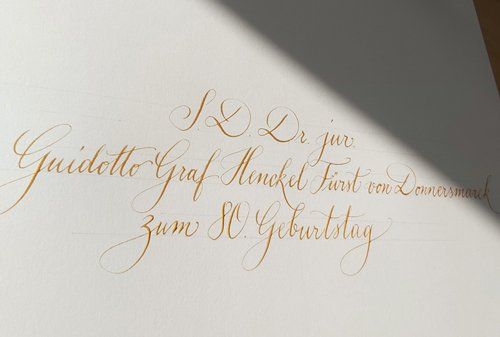 S. D. Dr. jur.
Guidotto Graf Henckel Fürst von Donnersmarck
zum 80. Geburtstag